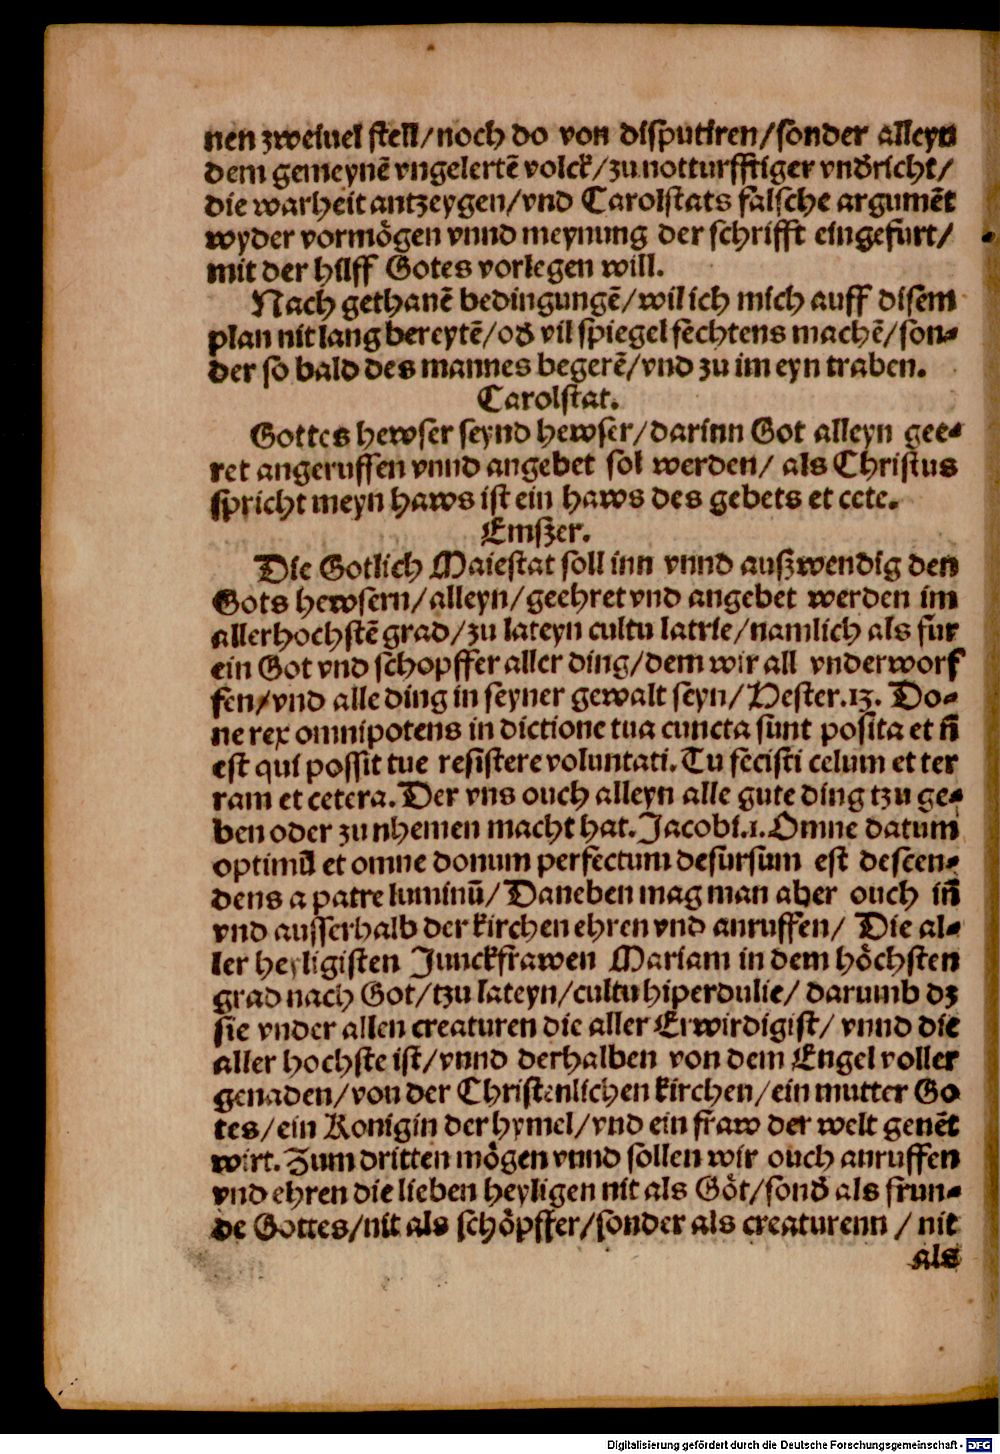 nen zweiuel stell/noch do von disputiren/sonder alleyn
dem gemeynē vngelertē volck/zu notturfftiger vnd̕richt/
die warheit antzeygen/vnd Carolstats falsche argumēt
wyder vormögen vnnd meynung der schrifft eingefurt/
mit der hilff Gotes vorlegen will.
Nach gethanē bedingungē/wil ich mich auff disem
plan nit lang bereytē/od̕ vil spiegel fechtens machē/son-
der so bald des mannes begerē/vnd zu im eyn traben.
Carolstat.
Gottes hewser seynd hewser/darinn Got alleyn gee-
ret angeruffen vnnd angebet sol werden/ als Christus
spricht meyn haws ist ein haws des gebets et cete.
Emszer.
Die Gotlich Maiestat soll inn vnnd außwendig den
Gots hewsern/alleyn/geehret vnd angebet werden im
allerhochstē grad/zu lateyn cultu latrie/namlich als fur
ein Got vnd schopffer aller ding/dem wir all vnderworf
fen/vnd alle ding in seyner gewalt seyn/Hester.13. Do-
ne rex omnipotens in dictione tua cuncta sunt posita et nō
est qui possit tue resistere voluntati. Tu fecisti celum et ter
ram et cetera. Der vns ouch alleyn alle gute ding tzu ge-
ben oder zu nhemen macht hat. Jacobi.1. Omne datum
optimū et omne donum perfectum desursum est descen-
dens a patre luminū/ Daneben mag man aber ouch in̄
vnd ausserhalb der kirchen ehren vnd anruffen/ Die al-
ler heyligisten Junckfrawen Mariam in dem höchsten
grad nach Got/tzu lateyn/cultu hiperdulie/ darumb dz
sie vnder allen creaturen die aller Erwirdigist/ vnnd die
aller hochste ist/vnnd derhalben von dem Engel voller
genaden/von der Christenlichen kirchen/ein mutter Go
tes/ein Konigin der hymel/vnd ein fraw der welt genēt
wirt. Zum dritten mögen vnnd sollen wir ouch anruffen
vnd ehren die lieben heyligen nit als Göt/sond̕ als frun-
de Gottes/nit als schöpffer/sonder als creaturenn / nit
als
Digitalisierung gefördert durch die Deutsche Forschungsgemeinschaft - DFG